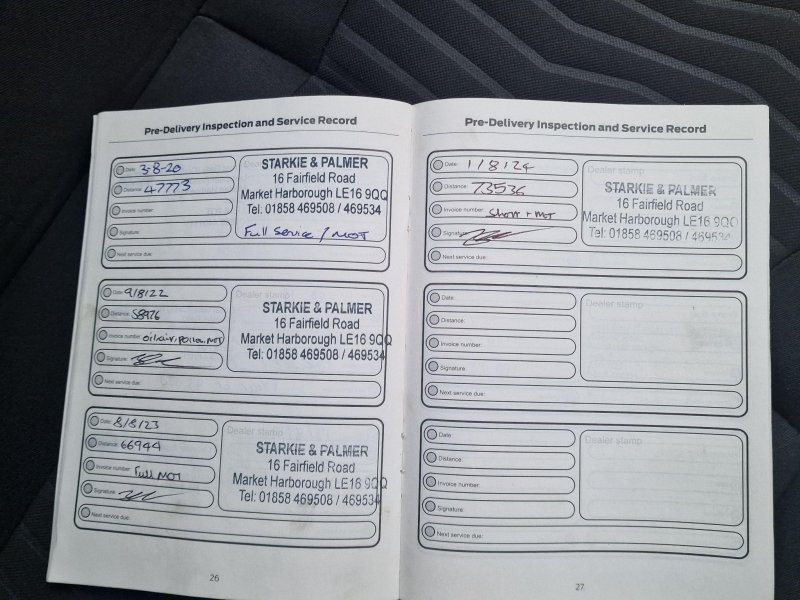 Pre-Delivery Inspection and Service Record
Date: 3-8-20
Distance: 47773
Invoice number:
Signature:
Next service due:
STARKIE & PALMER
16 Fairfield Road
Market Harborough LE16 9QQ
Tel: 01858 469508 / 469534
Full Service / MOT
Date: 9/8/22
Distance: 58976
Invoice number: oil.air.pollen.MOT
Signature:
Next service due:
Dealer stamp
STARKIE & PALMER
16 Fairfield Road
Market Harborough LE16 9QQ
Tel: 01858 469508 / 469534
Date: 8/8/23
Distance: 66944
Invoice number: Full MOT
Signature:
Next service due:
Dealer stamp
STARKIE & PALMER
16 Fairfield Road
Market Harborough LE16 9QQ
Tel: 01858 469508 / 469534
26
Pre-Delivery Inspection and Service Record
Date: 1/8/24
Distance: 73536
Invoice number: Short + MOT
Signature:
Next service due:
Dealer stamp
STARKIE & PALMER
16 Fairfield Road
Market Harborough LE16 9QQ
Tel: 01858 469508 / 469534
Date:
Distance:
Invoice number:
Signature:
Next service due:
Dealer stamp
Date:
Distance:
Invoice number:
Signature:
Next service due:
Dealer stamp
27